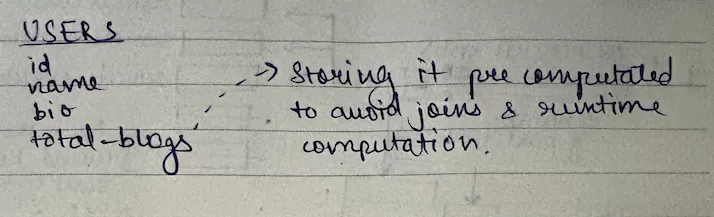 USERS
id
name
bio
total-blogs
→ Storing it pre computated
to avoid joins & runtime
computation.